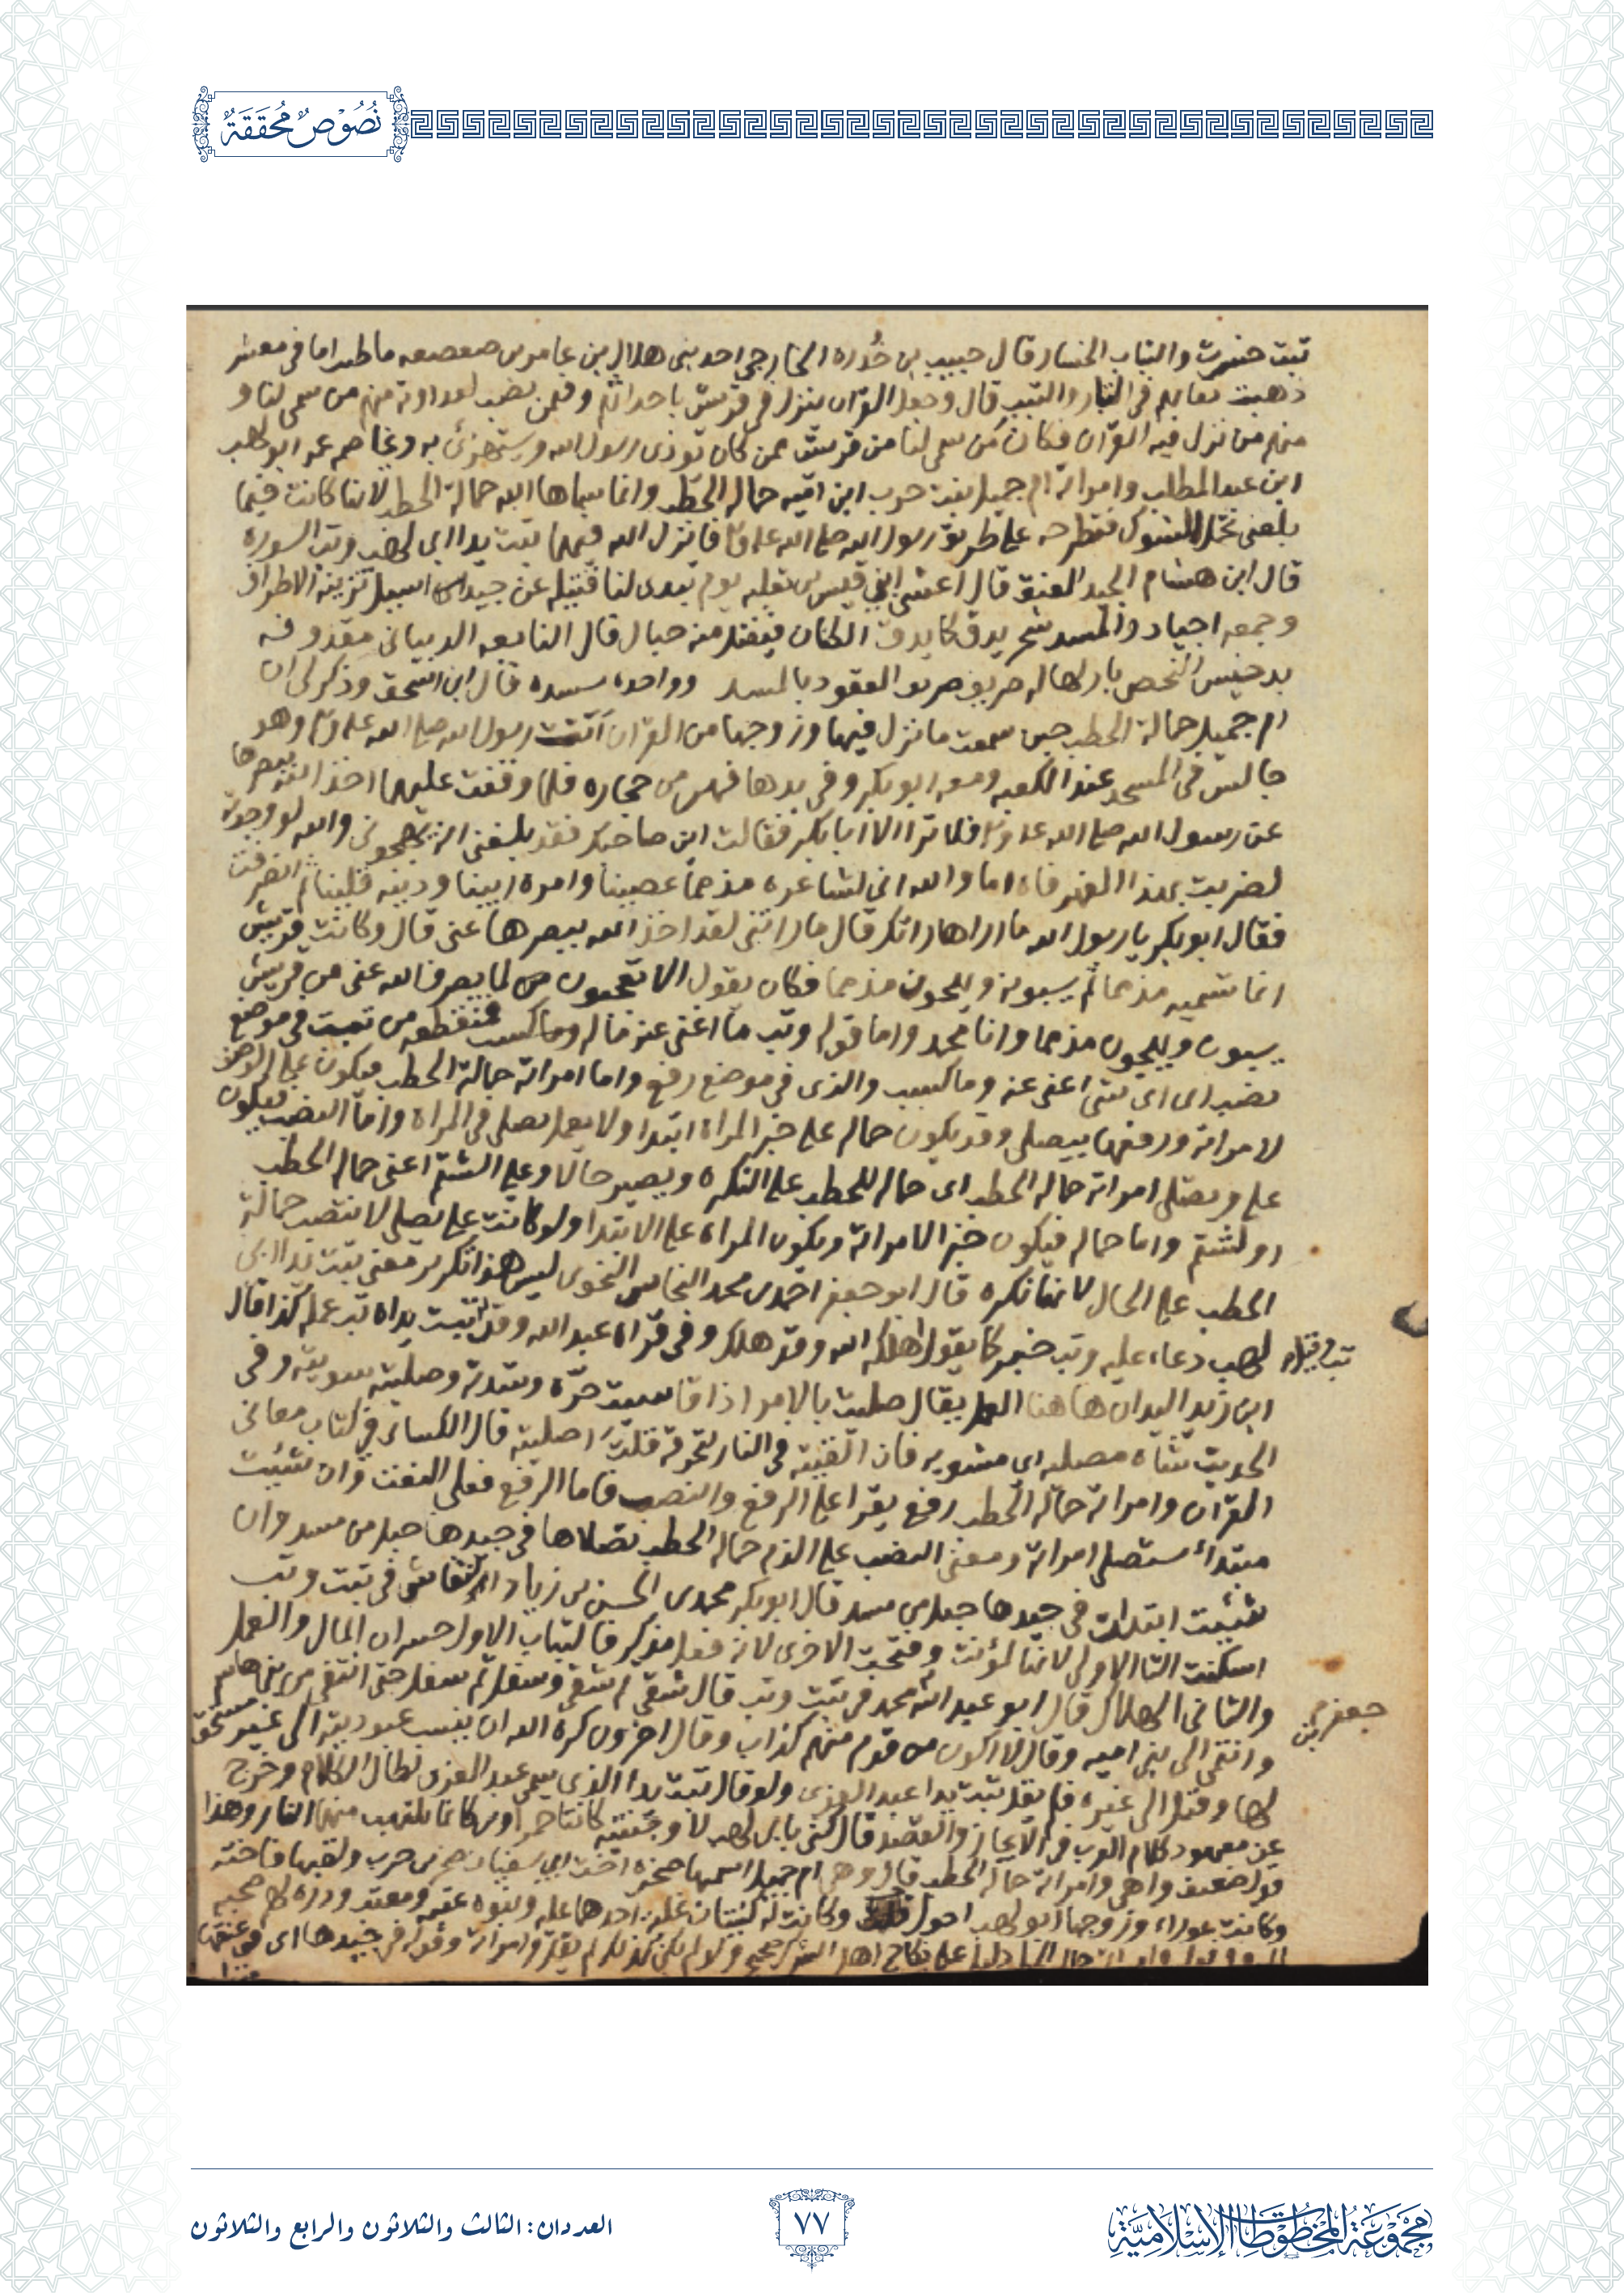 نُصُوْصٌ مُحَقَّقَةٌ
تبت خسرت والتباب الخسار قال حبيب بن خُدره الخارجي احد بني هلال بن عامر بن صعصعه ما طيب اما في معشر
ذهبت في التبار والتبب قال وجعل القران ينزل في قريش باحداثهم وفيمن نصب لعداوته منهم من سمي لنا و
منهم من نزل فيه القران فكان من سمي لنا من قريش ممن كان توذى رسول الله ويستهزئ به وعمه ابو لهب
ابن عبد المطلب وامراته ام جميل بنت حرب ابن اميه حماله الحطب وانما سماها الله حمالة الحطب لانها كانت فيما
بلغني تحمل الشوك فتطرحه على طريق رسول الله صلى الله عليه فانزل الله فيهما تبت يدا ابي لهب وتب السورة
قال ابن هشام الجيد العنق قال اعشى بني قيس بن ثعلبه يوم تبدى لنا قتيله عن جيد اسيل تزينه الاطراف
وجمعه اجياد والمسد شجر يدق كما يدق الكتان فيفتل منه حبال قال النابغه الذبياني مقذوفه
بدخيس النحض بازلها له صريف صريف القعو بالمسد وواحده مسده قال ابن اسحق وذكر لي ان
ام جميل حمالة الحطب حين سمعت ما نزل فيها وزوجها من القران اتت رسول الله صلى الله عليه وهو
جالس في المسجد عند الكعبه ومعه ابو بكر وفي يدها فهر من حجاره فلما وقفت عليهما اخذ الله ببصرها
عن رسول الله صلى الله فلا ترا الا ابا بكر فقالت اين صاحبك فقد بلغني انه يهجوني والله لو وجدته
لضربت بهذا الفهر فاه اما والله اني لشاعره مذمما عصينا وامره ابينا ودينه قلينا ثم انصرفت
فقال ابو بكر يا رسول الله ما اراها راتك قال ما راتني لقد اخذ الله ببصرها عني قال وكانت قريش
انما تسميه مذمما ثم يسبونه ويهجون مذمما فكان يقول الا تعجبون لما يصرف الله عني من قريش
يسبون ويهجون مذمما وانا محمد واما قوله وتب ما اغنى عنه ماله وما كسب في موضع
نصب اى اى شي اغنى عنه وما كسب والذى في موضع رفع واما امراته حمالة الحطب فيكون على
لامراته ورفعها بيصلى وقد يكون حماله على خبر المراة ابتدا ولا يعمل يصلى في المراة واما النصب فيكون
على ويصلى امراته حماله الحطب اى حماله للحطب على النكره ويصير حالا وعلى الشتم اعني حماله الحطب
او لشتم واما حماله فيكون خبر الامراته وتكون المراه على الابتدا ولو كانت على يصلى لانتصب حمالة
الحطب على الحال لانها نكره قال ابو جعفر احمد بن محمد النحاس النحوى ليس هذا تكرير معنى تبت يدا ابي
لهب دعاء عليه وتب خبر كما يقول اهلكه الله وقد هلك وفي قراة عبد الله وقد تبت يداه تب عمله كذا قال
ابن زيد اليدان ها هنا العمل يقال صليت بالامر اذا قاسيت حره وشدته وصليته سويته وفي
الحديث شاه مصليه اي مشويه فان القيته في النار لتحرقه قلت اصليته قال الكسائي في كتاب معاني
القران وامراته حماله الحطب رفع يقرا على الرفع والنصب فاما الرفع فعلى النعت وان شئت
مبتداء ستصلى امراته ومعنى النصب على الذم حماله الحطب تصلاها في جيدها حبل من مسد وان
شئت ابتدات في جيدها حبل من مسد قال ابو بكر محمد بن الحسن بن زياد النقاش في تبت وتب
اسكنت التا الاولى لانها لمؤنث وفتحت الاخرى لانه فعل مذكر فالتباب الاول خسران المال والعمل
والثاني الهلاك قال ابو عبد الله محمد في تبت وتب قال شقي ثم شقي وسفل ثم سفل حتى انتفى من بني هاشم
وانتمى الى بني اميه وقال لا اكون من قوم منهم كذاب وقال اخرون كره الله ان ينسب عبوديته الى غير مستحق
لها وقيل الى غيره فلم يقل تبت يدا عبد العزى ولو قال تبت يدا الذي سمي عبد العزى لطال الكلام وخرج
عن معهود كلام العرب في الايجاز والقصد قال كني بابي لهب لان وجنتيه كانتا حمراوين كانما يلتهب منهما النار وهذا
قول ضعيف واهي وامراته حماله الحطب قال وهي ام جميل اسمها صخره اخت ابي سفيان صخر بن حرب ولقبها فاخته
وكانت عوراء وزوجها ابو لهب احول وكانت له كنيتان احدهما وبنوه عتبه ومعتب ودره لهم صحبه
على نكاح اهل الشرك صحيح ولو لم يكن كذلك لم يقل وامراته وقوله في جيدها اى في عنقها
مجموعة المخطوطات الإسلامية
٧٧
العددان: الثالث والثلاثون والرابع والثلاثون